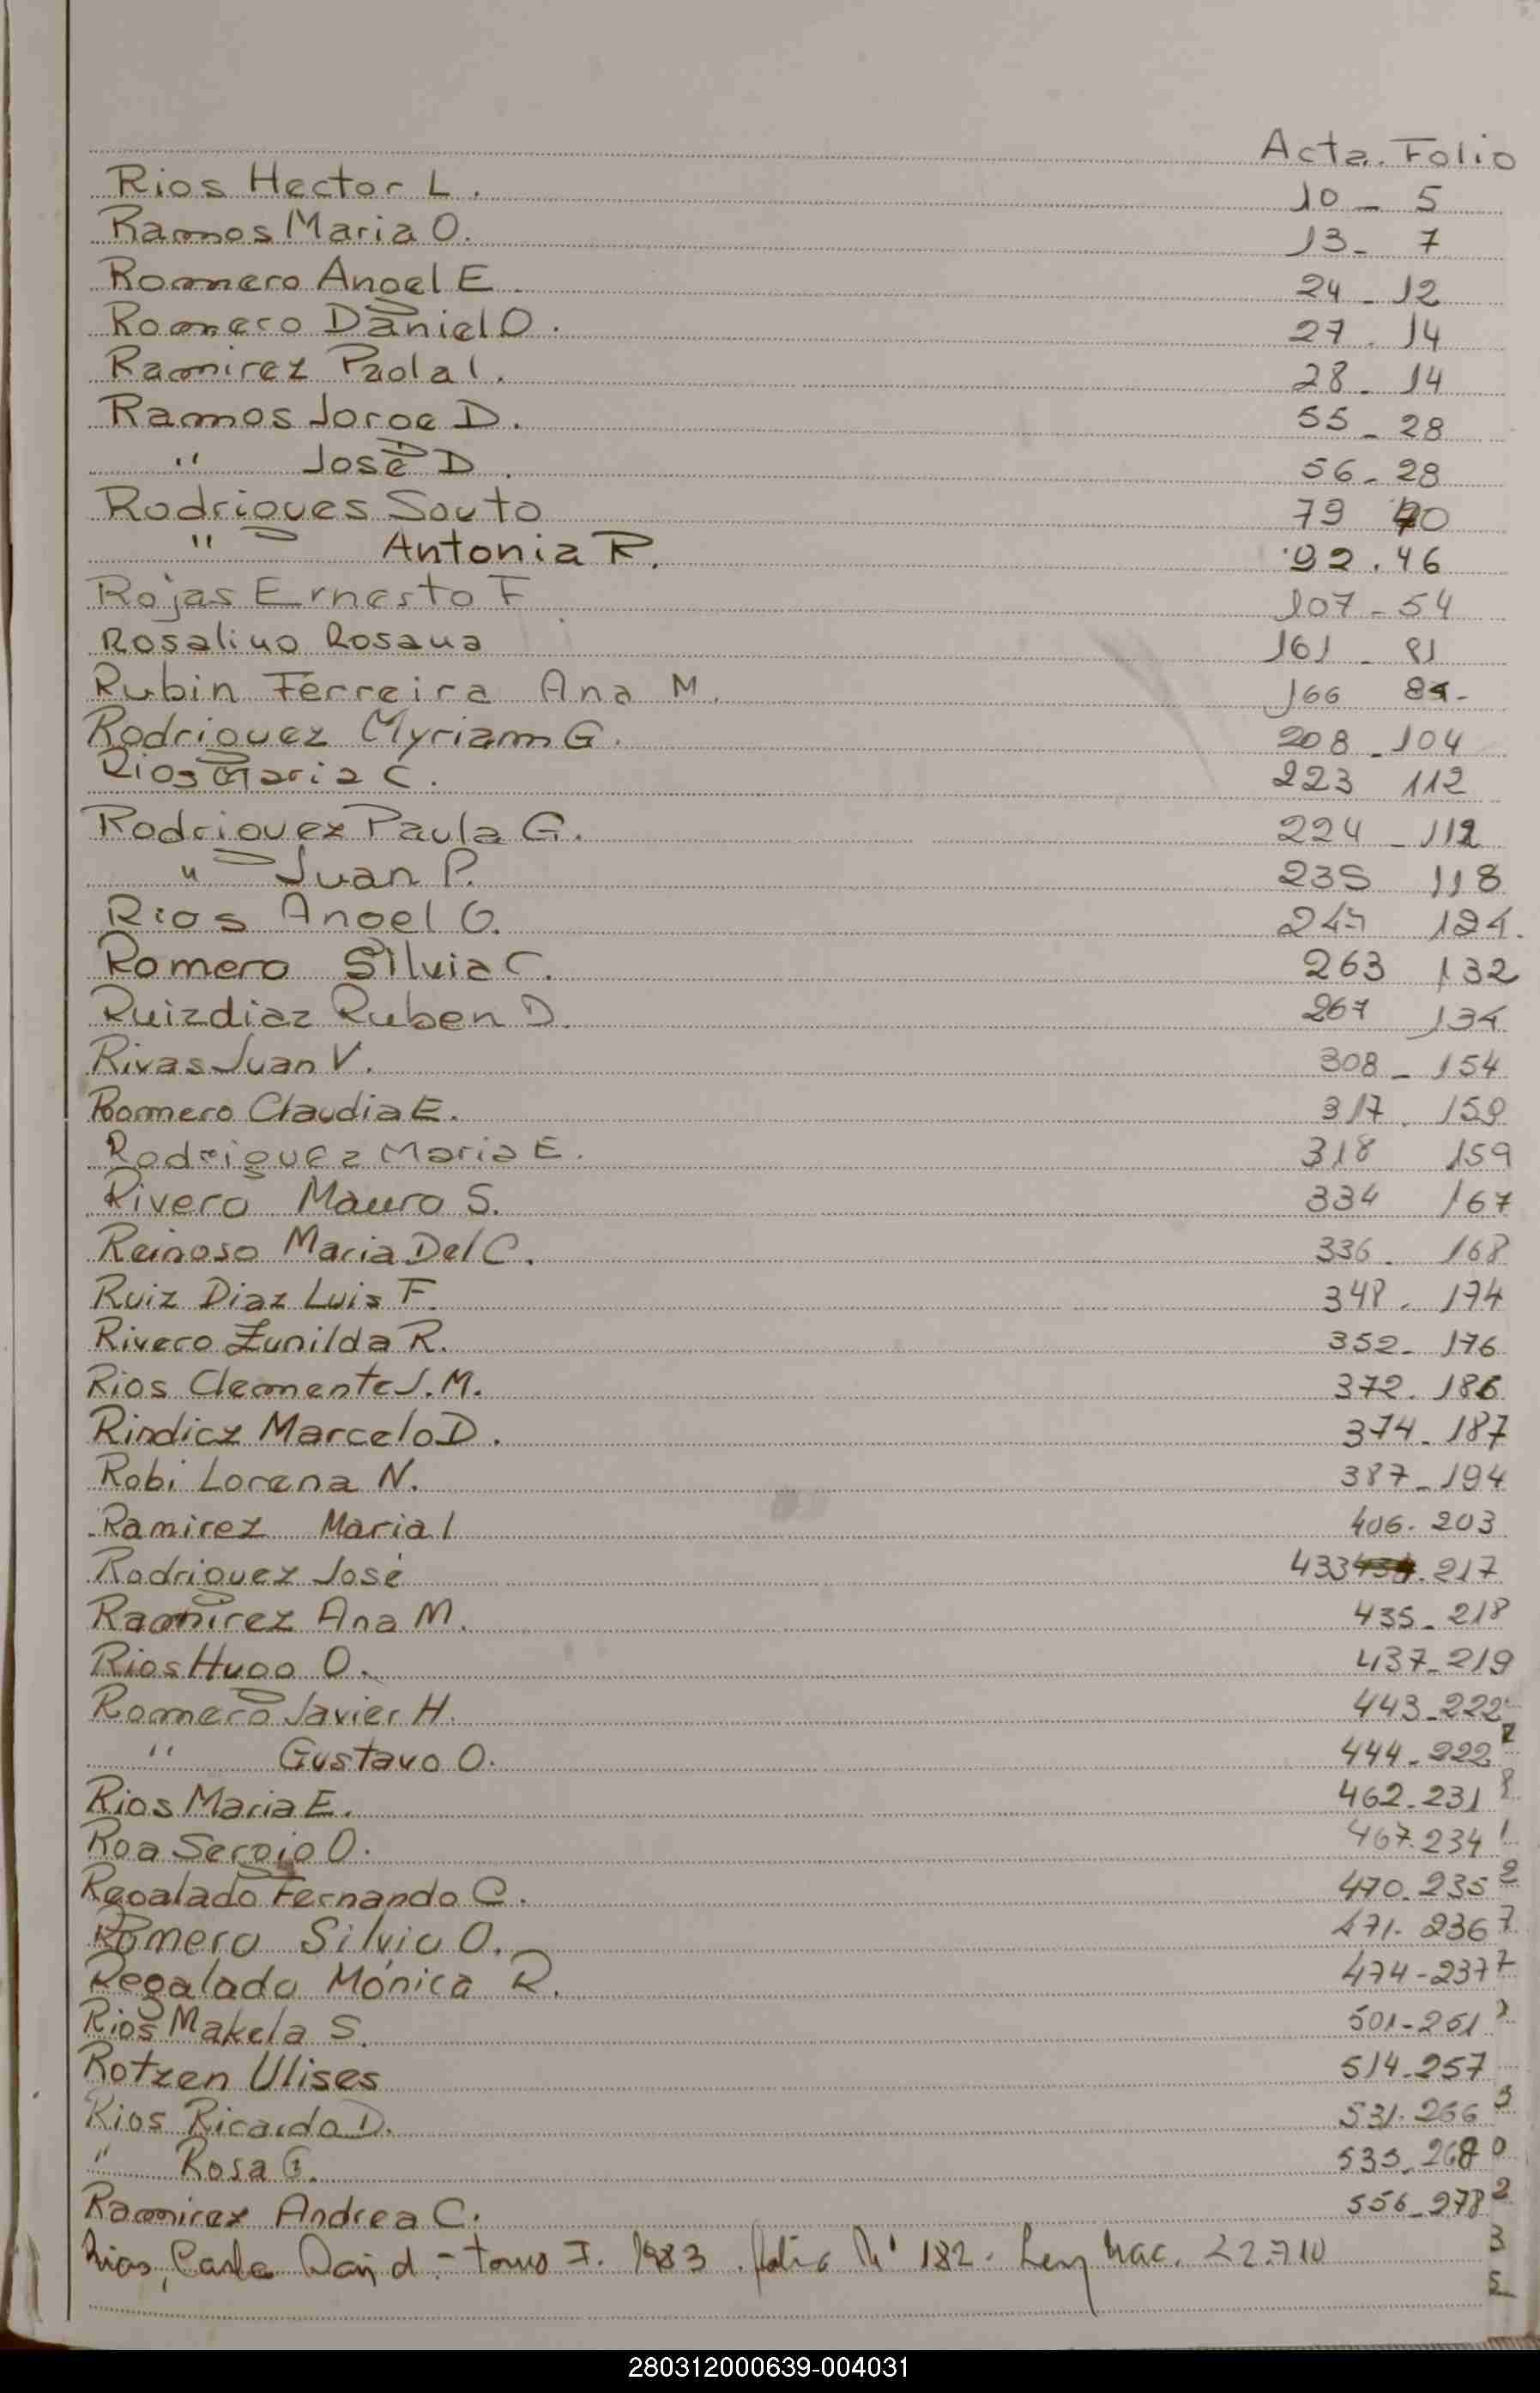 Acta. Folio
Rios Hector L. 10 - 5
Ramos Maria O. 13 - 7
Romero Angel E. 24 - 12
Romero Daniel O. 27 . 14
Ramirez Paola I. 28 - 14
Ramos Jorge D. 55 - 28
" José D. 56 - 28
Rodrigues Souto 79 40
" Antonia R. 92 . 46
Rojas Ernesto F 107 - 54
Rosalino Rosana 161 - 81
Rubin Ferreira Ana M. 166 84-
Rodriguez Myriam G. 208 - 104
Rios Maria C. 223 112
Rodriguez Paula G. 224 - 112
" Juan P. 235 118
Rios Angel G. 247 124.
Romero Silvia C. 263 132
Ruizdiaz Ruben D. 267 134
Rivas Juan V. 308 - 154
Romero Claudia E. 317 . 159
Rodriguez Maria E. 318 159
Rivero Mauro S. 334 167
Reinoso Maria Del C. 336 - 168
Ruiz Diaz Luis F. 348 . 174
Rivero Zunilda R. 352 - 176
Rios Clemente J. M. 372 . 186
Rindicz Marcelo D. 374 - 187
Robi Lorena N. 387 - 194
Ramirez Maria I 406 . 203
Rodriguez José 433 . 217
Ramirez Ana M. 435 - 218
Rios Hugo O. 437 - 219
Romero Javier H. 443 - 222
" Gustavo O. 444 - 222
Rios Maria E. 462 - 231
Roa Sergio O. 467 . 234
Regalado Fernando C. 470 . 235
Romero Silvio O. 471 - 236
Regalado Mónica R. 474 - 237
Rios Makela S. 501 - 251
Rotzen Ulises 514 - 257
Rios Ricardo D. 531 . 266
" Rosa G. 535 - 268
Ramirez Andrea C. 556 - 278
Rios, Carlos David - tomo I. 1983 . folio Nº 182 . Ley Nac. 22.710
280312000639-004031